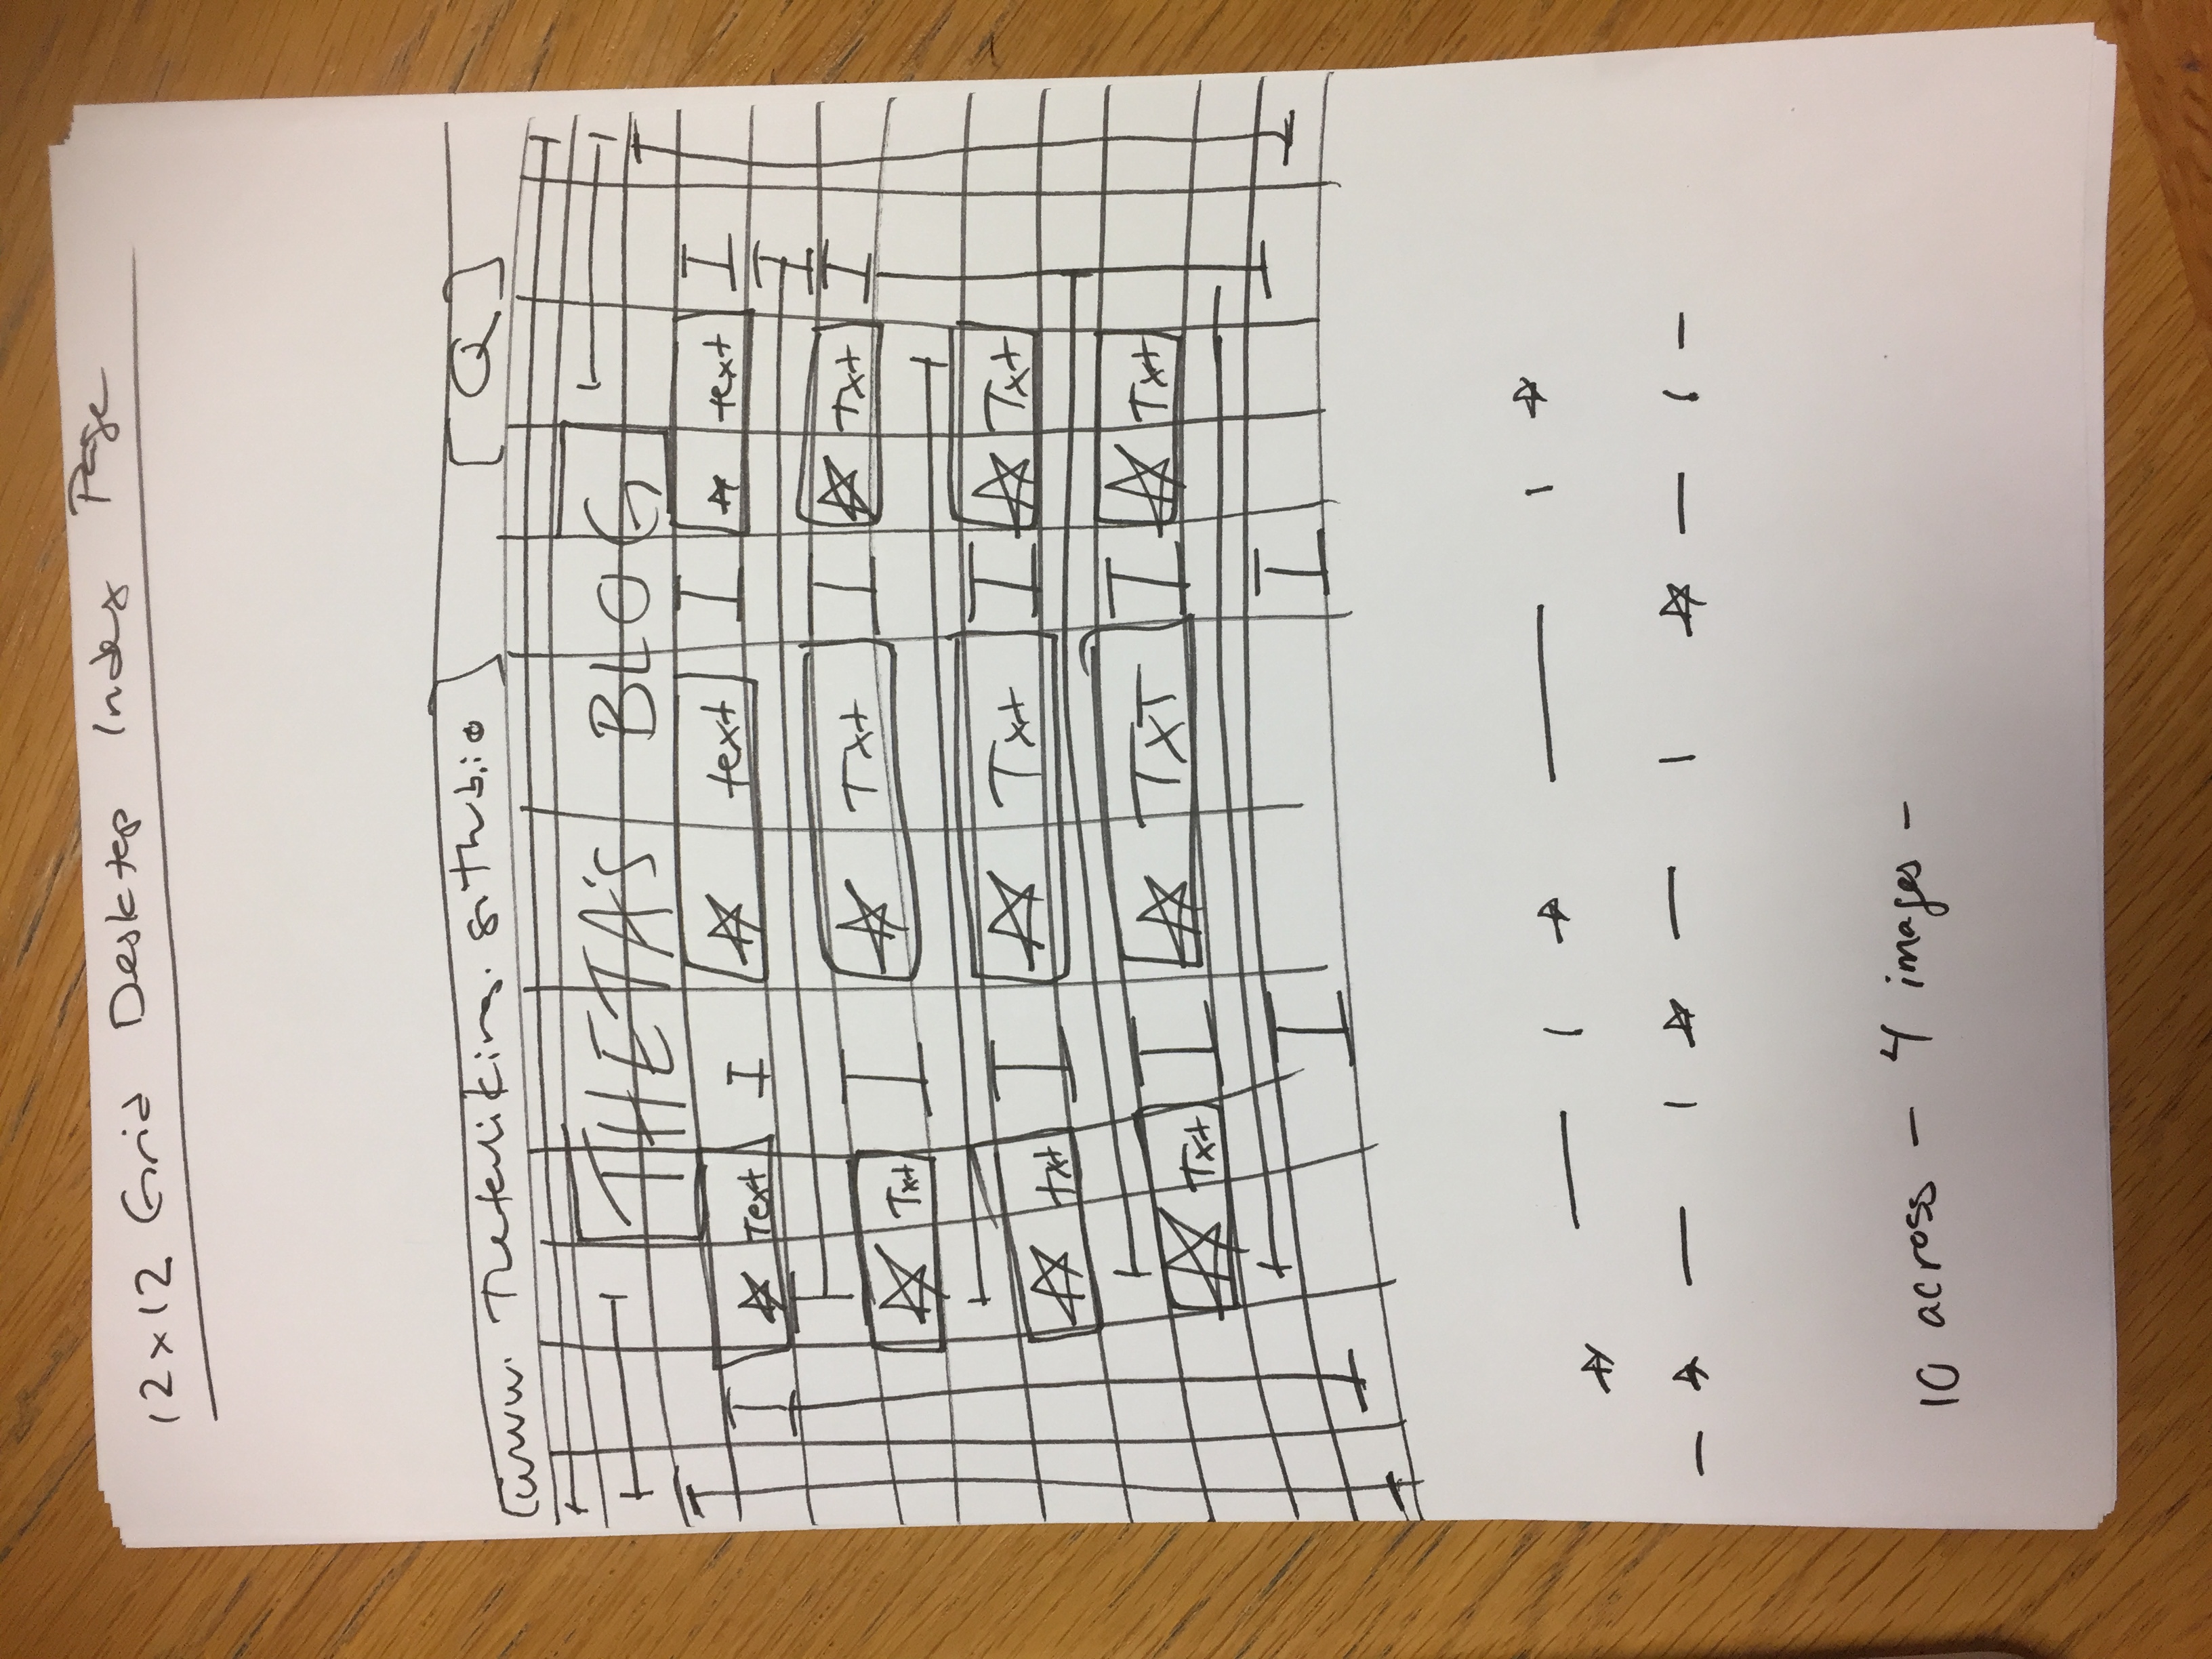 12x12 Grid Desktop Index Page
www. Thetaviking. github.io Q
THETA'S BLOG
Text text text
Txt Txt Txt
txt Txt Txt
Txt TxT Txt
10 across - 4 images -